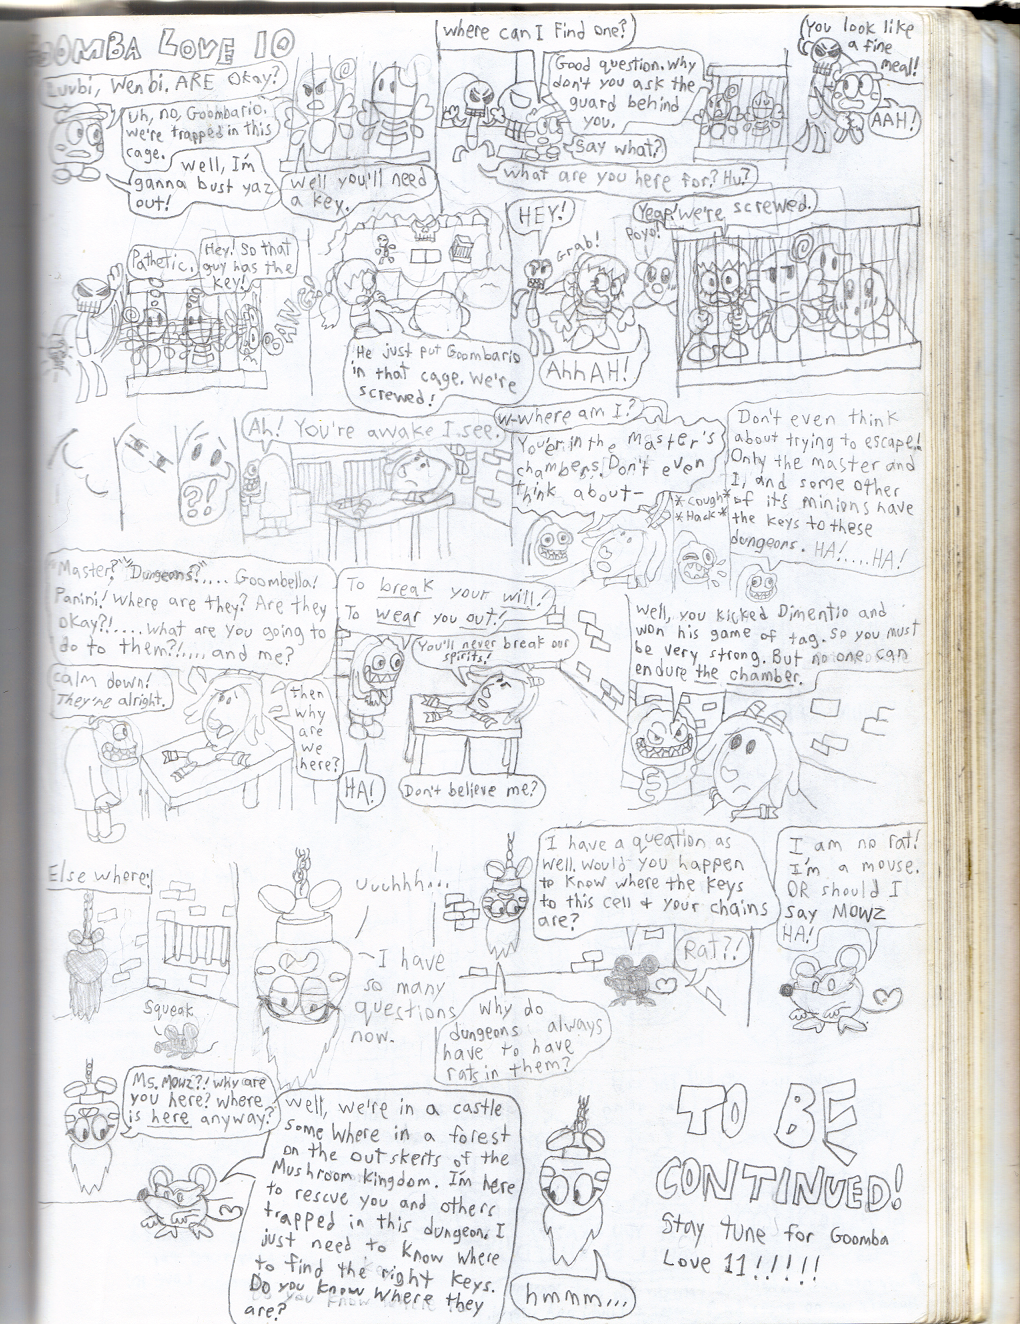 GOOMBA LOVE 10
Luvbi, Wenbi, ARE Okay?
Uh, no, Goombario.
we're trapped in this
cage.
Well, I'm
ganna bust yaz
out!
Well you'll need
a key.
where can I find one?
Good question. Why
don't you ask the
guard behind
you.
Say what?
what are you here for? Hu?
You look like
a fine
meal!
AAH!
Pathetic.
Hey! So that
guy has the
key!
BANG!
He just put Goombario
in that cage. We're
screwed!
HEY!
Grab!
Poyo!
AhhAH!
Yeap! We're screwed.
?!
Ah! You're awake I see.
W-where am I?
You're in the Master's
chambers. Don't even
think about-
*Cough*
*Hack*
Don't even think
about trying to escape!
Only the master and
I, and some other
of it's minions have
the keys to these
dungeons. HA!....HA!
"Master?" "Dungeons?"..... Goombella!
Panini! Where are they? Are they
okay?!..... what are you going to
do to them?!.... and me?
Calm down!
They're alright.
then
why
are
we
here?
To break your will!
To wear you out!
You'll never break our
spirits!
HA!
Don't believe me?
Well, you kicked Dimentio and
won his game of tag. So you must
be very strong. But no one can
endure the chamber.
Else where.
Squeak
uuuhhh...
I have
so many
questions
now.
Why do
dungeons always
have to have
rats in them?
I have a queation as
well. Would you happen
to know where the keys
to this cell & your chains
are?
RAT?!
I am no rat!
I'm a mouse.
OR should I
say MOWZ
HA!
Ms. Mowz?! why are
you here? Where
is here anyway?
Well, we're in a castle
some where in a forest
on the outskerts of the
Mushroom Kingdom. I'm here
to rescue you and others
trapped in this dungeon. I
just need to know where
to find the right keys.
Do you know where they
are?
hmmm...
TO BE
CONTINUED!
Stay tune for Goomba
Love 11!!!!!